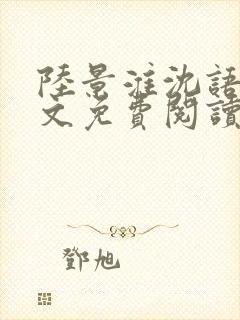 陸景淮沈語
文免費閱讀
鄧旭